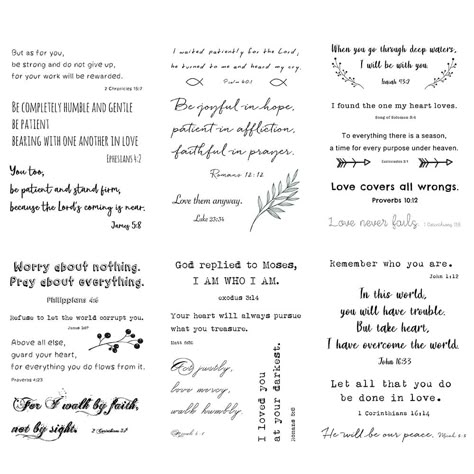 But as for you,
be strong and do not give up,
for your work will be rewarded.
2 Chronicles 15:7
Be completely humble and gentle
be patient
bearing with one another in love
Ephesians 4:2
You too,
be patient and stand firm,
because the Lord's coming is near.
James 5:8
I waited patiently for the Lord,
he turned to me and heard my cry.
Psalm 40:1
Be joyful in hope,
patient in affliction,
faithful in prayer.
Romans 12:12
Love them anyway.
Luke 23:34
When you go through deep waters,
I will be with you.
Isaiah 43:2
I found the one my heart loves.
Song of Solomon 3:4
To everything there is a season,
a time for every purpose under heaven.
Ecclesiastes 3:1
Love covers all wrongs.
Proverbs 10:12
Love never fails. 1 Corinthians 13:8
Worry about nothing.
Pray about everything.
Philippians 4:6
Refuse to let the world corrupt you.
Above all else,
guard your heart,
for everything you do flows from it.
Proverbs 4:23
For I walk by faith,
not by sight. 2 Corinthians 5:7
God replied to Moses,
I AM WHO I AM.
exodus 3:14
Your heart will always pursue
what you treasure.
Act justly,
love mercy,
walk humbly.
I loved you
at your darkest.
Romans 5:8
Remember who you are.
John 1:12
In this world,
you will have trouble.
But take heart,
I have overcome the world.
John 16:33
Let all that you do
be done in love.
1 Corinthians 16:14
He will be our peace. Micah 5:5